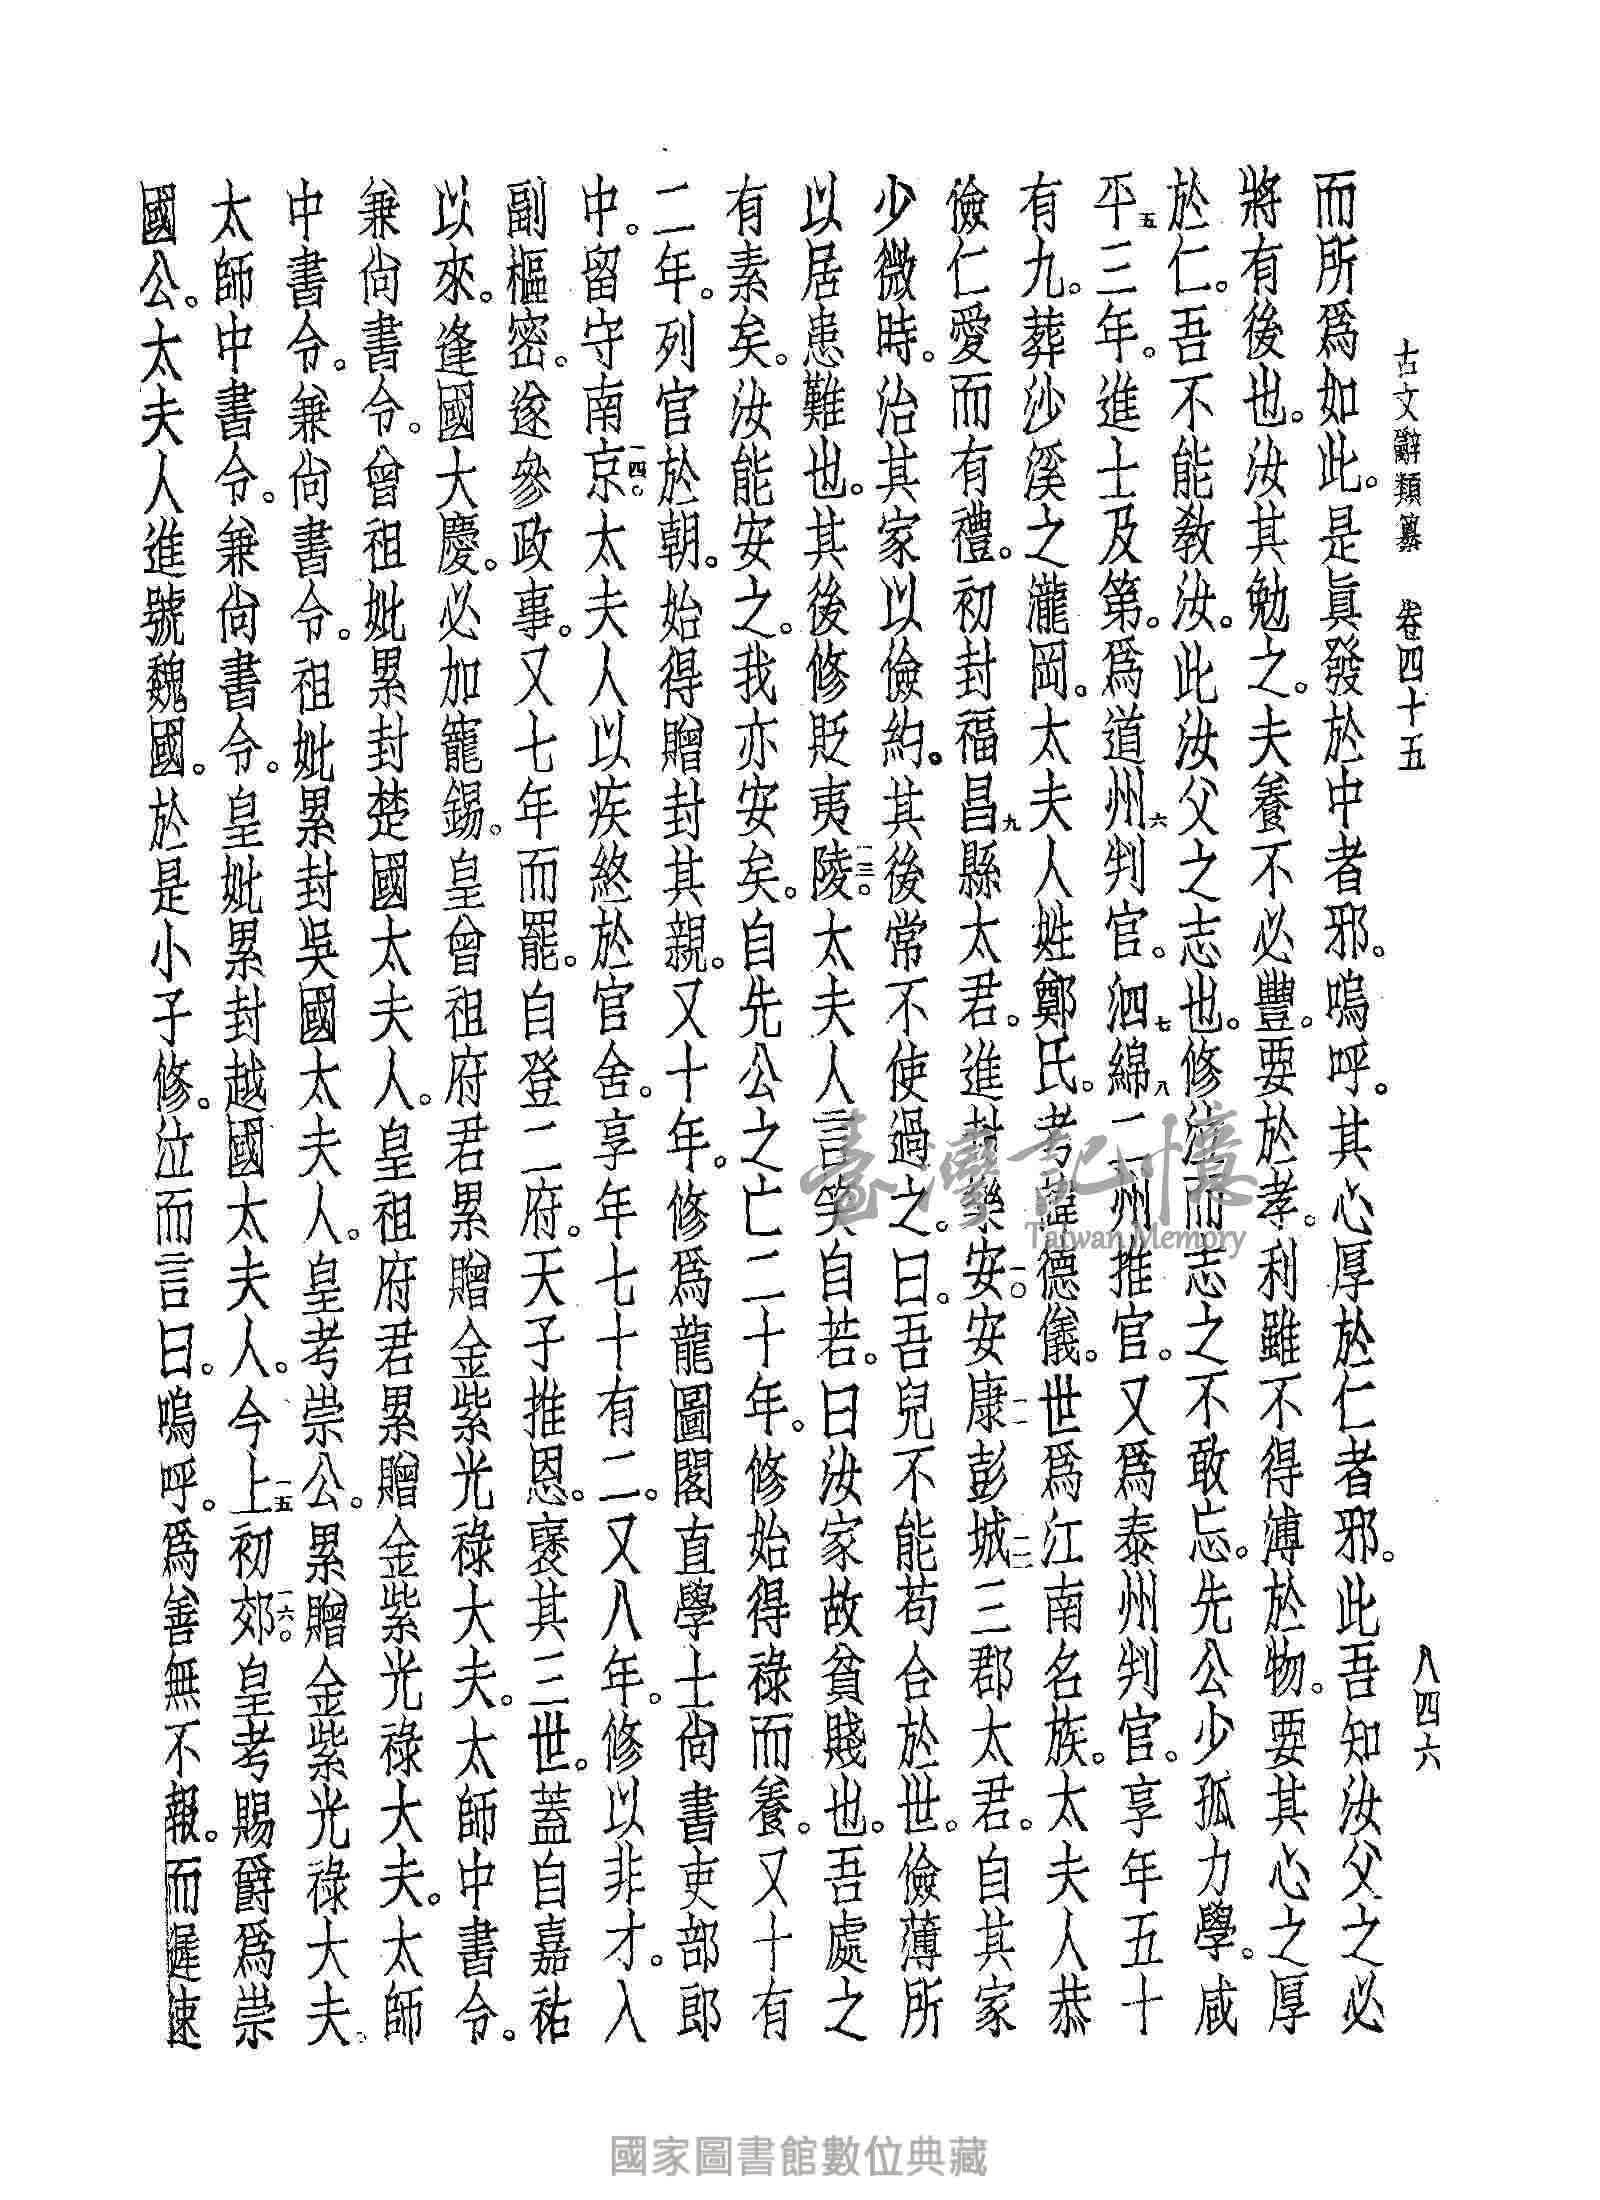 古文辭類纂　卷四十五　八四六
而所爲如此。是眞發於中者邪。嗚呼。其心厚於仁者邪。此吾知汝父之必
將有後也。汝其勉之。夫養不必豐。要於孝。利雖不得溥於物。要其心之厚
於仁。吾不能敎汝。此汝父之志也。修泣而志之不敢忘。先公少孤力學。咸
平五三年。進士及第。爲道州六判官。泗七綿八二州推官。又爲泰州判官。享年五十
有九。葬沙溪之瀧岡。太夫人姓鄭氏。考諱德儀。世爲江南名族。太夫人恭
儉仁愛而有禮。初封福昌九縣太君。進封樂安一〇。安康一一彭城一二三郡太君。自其家
少微時。治其家以儉約。其後常不使過之。曰。吾兒不能苟合於世。儉薄所
以居患難也。其後修貶夷陵一三。太夫人言笑自若。曰汝家故貧賤也。吾處之
有素矣。汝能安之。我亦安矣。自先公之亡二十年。修始得祿而養。又十有
二年。列官於朝。始得贈封其親。又十年。修爲龍圖閣直學士尙書吏部郎
中。留守南京一四。太夫人以疾終於官舍。享年七十有二。又八年。修以非才。入
副樞密。遂參政事。又七年而罷。自登二府。天子推恩。褒其三世。蓋自嘉祐
以來。逢國大慶。必加寵錫。皇曾祖府君累贈金紫光祿大夫。太師中書令。
兼尙書令。曾祖妣累封楚國太夫人。皇祖府君累贈金紫光祿大夫。太師
中書令。兼尙書令。祖妣累封吳國太夫人。皇考崇公。累贈金紫光祿大夫。
太師中書令。兼尙書令。皇妣累封越國太夫人。今上一五初郊一六。皇考賜爵爲崇
國公。太夫人進號魏國。於是小子修。泣而言曰。嗚呼。爲善無不報。而遲速
臺灣記憶
Taiwan Memory
國家圖書館數位典藏